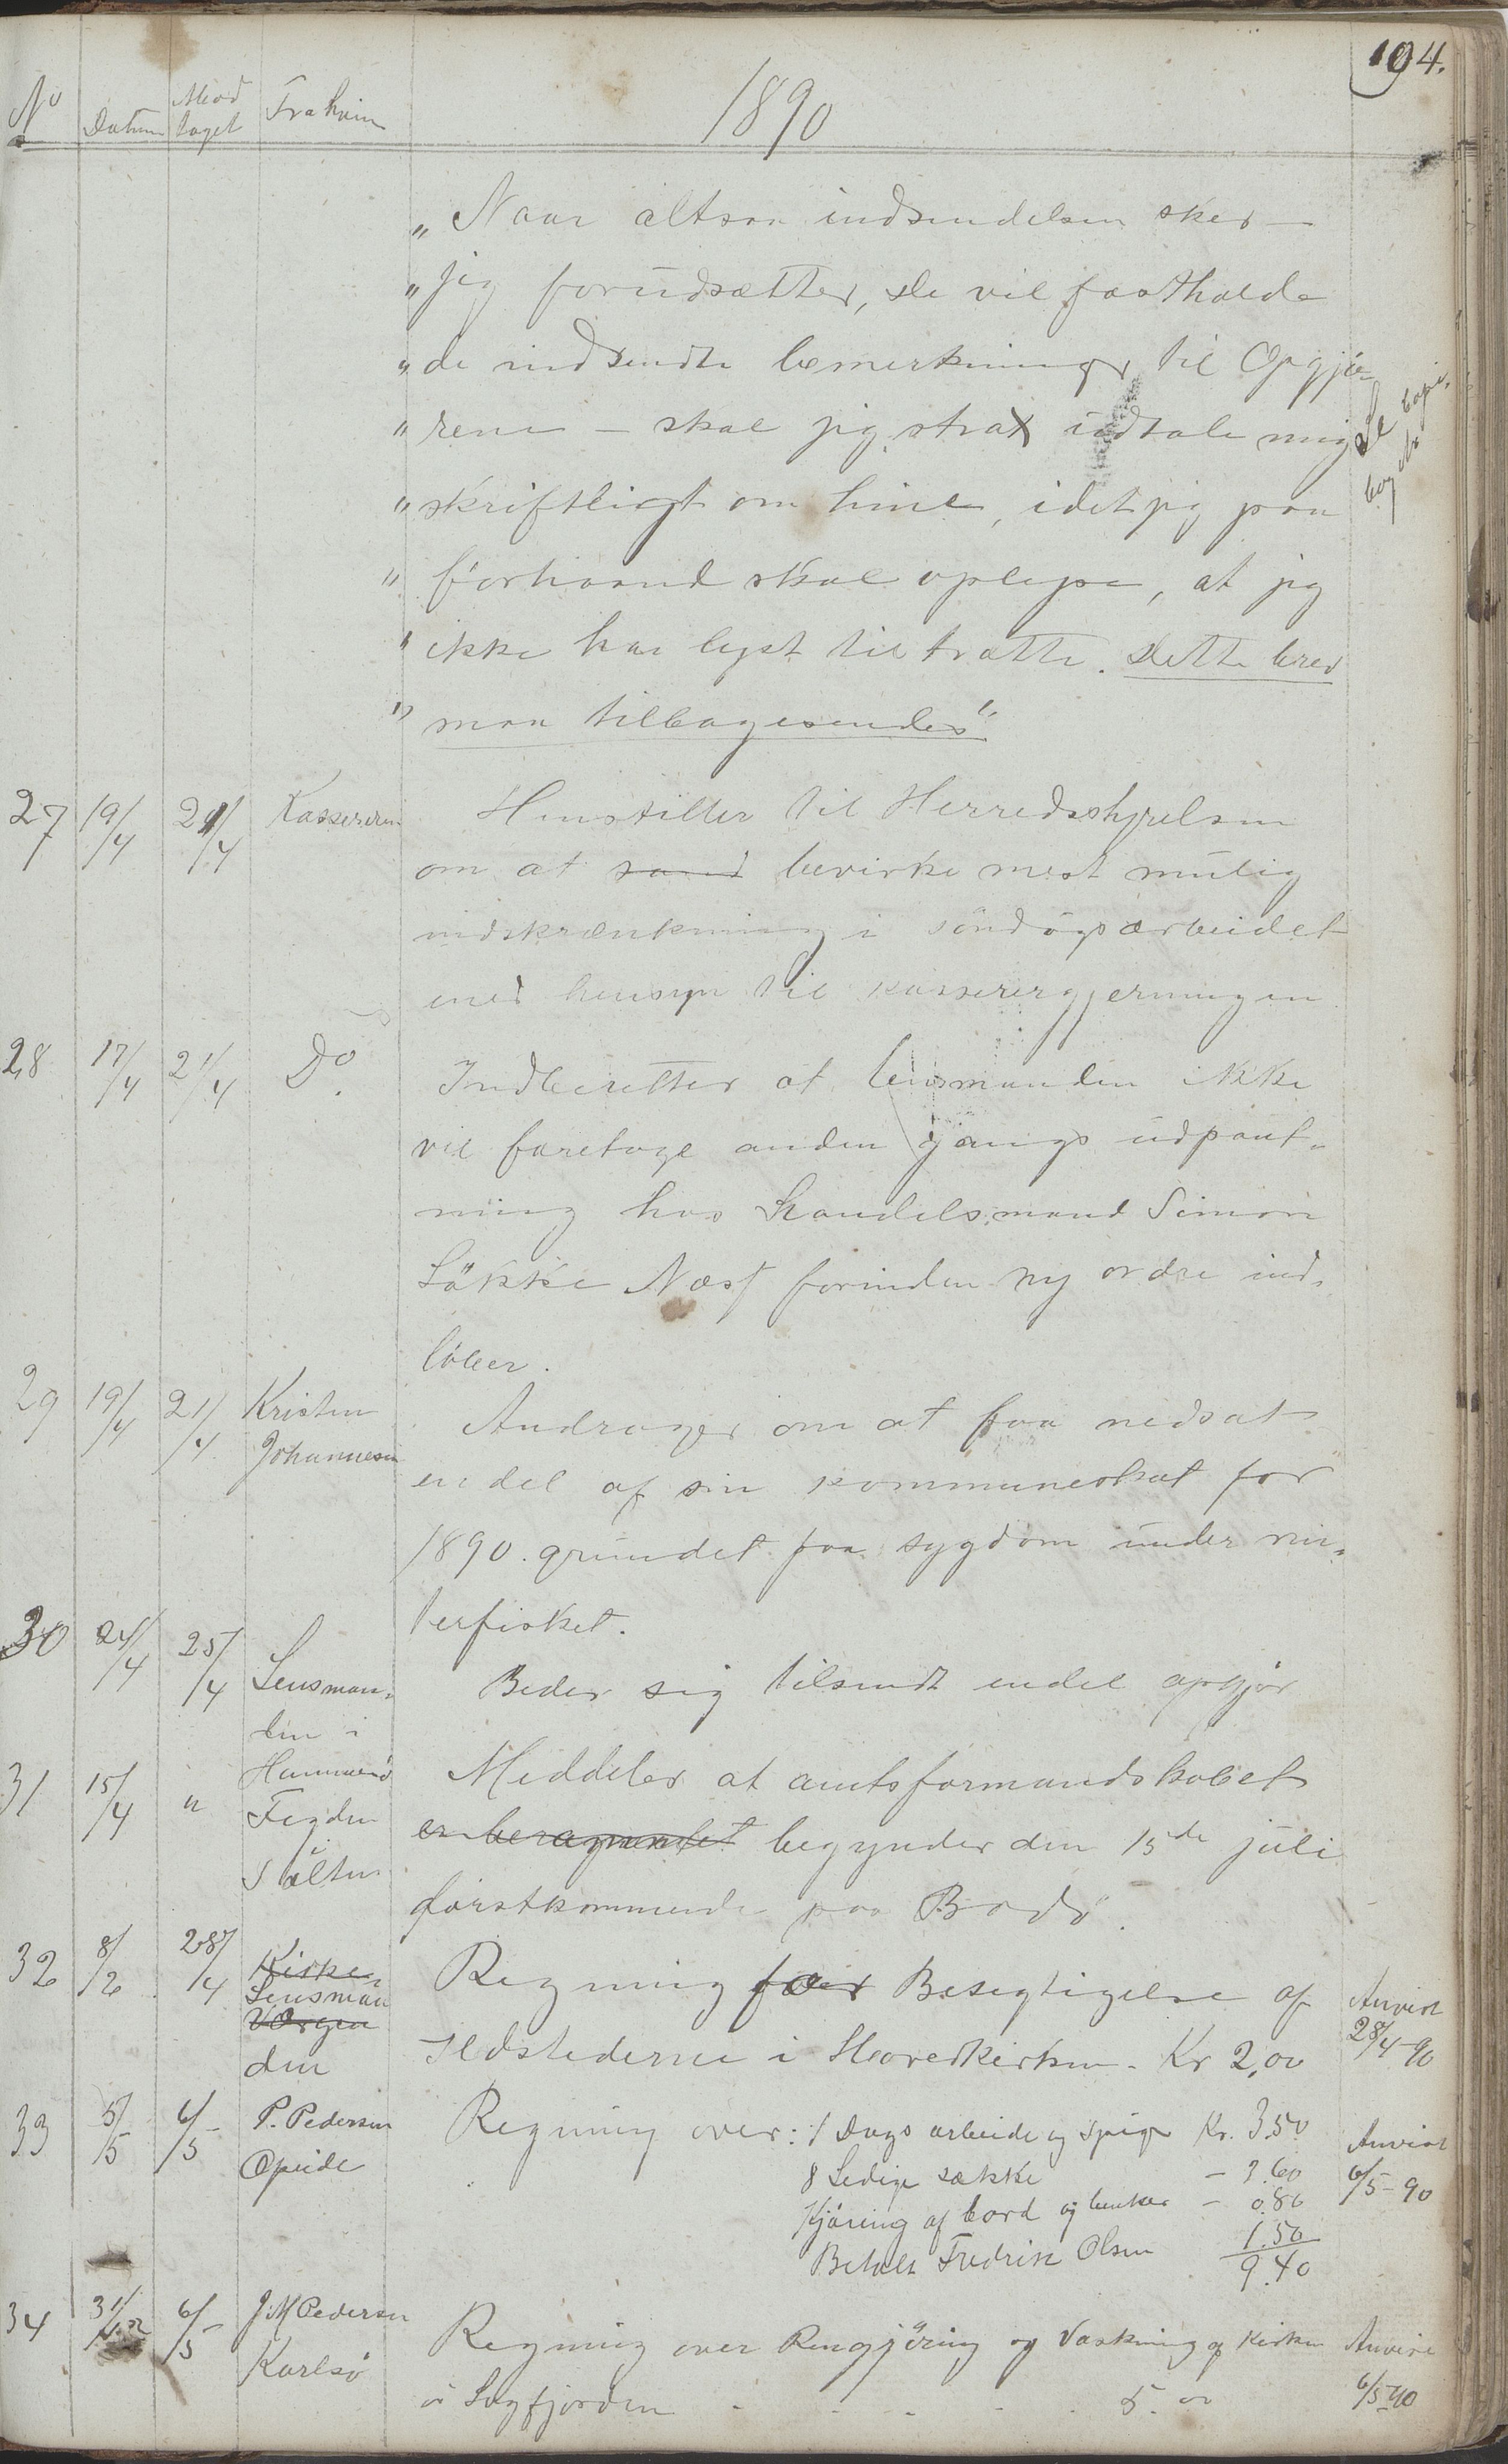 194.
No Datum Mod taget Fra hvem 1890
„ Naar altsaa indsendelsen sker —
„ jeg forudsætter, De vil fastholde
„ de indsendte bemerkninger til Opgjø-
„ rene — skal jeg strax udtale mig
„ skriftligt om hine, idet jeg paa
„ forhaand skal oplyse, at jeg
„ ikke har lyst til trætte. Dette brev
„ maa tilbagesendes“
27 19/4 21/4 Kassereren Henstiller til Herredsstyrelsen
om at bevirke mest mulig
indskrænkning i söndagsarbeidet
med hensyn til kasserergjerningen
28 17/4 21/4 Do. Indberetter at lensmanden ikke
vil foretage anden gangs udpant-
ning hos Handelsmand Simon
Løkke Næs forinden ny ordre ind-
löber.
29 19/4 21/4 Kristen Johannesen Andrager om at faa nedsat
endel af sin kommuneskat for
1890 grundet paa sygdom under vin-
terfisket.
30 24/4 25/4 Lensman- den i Hammerö Beder sig tilsendt endel opgjör
31 15/4 " Fogden i Salten Meddeler at amtsformandskabet
begynder den 15de juli
förstkommende paa Bodö.
32 8/2 28/4 Kirke- Værgen Lensman den Regning for Besegtigelse af Anvist
Ildstederne i Hovedkirken - Kr 2,00 28/4 90
33 5/5 6/5 P. Pedersen Opeide Regning over: 1 Dags arbeide og Spiger Kr. 3.50 Anvist
8 Ledige sække — 3.60 6/5-90
Kjöring af bord og benker — 0.80
Betalt Fredrik Olsen 1.50
9.40
34 6/5 J M Pedersen Karlsö Regning over Rengjöring og Vaskning af Kirken Anvist
i Sagfjorden - - - - 5.00 6/5 90